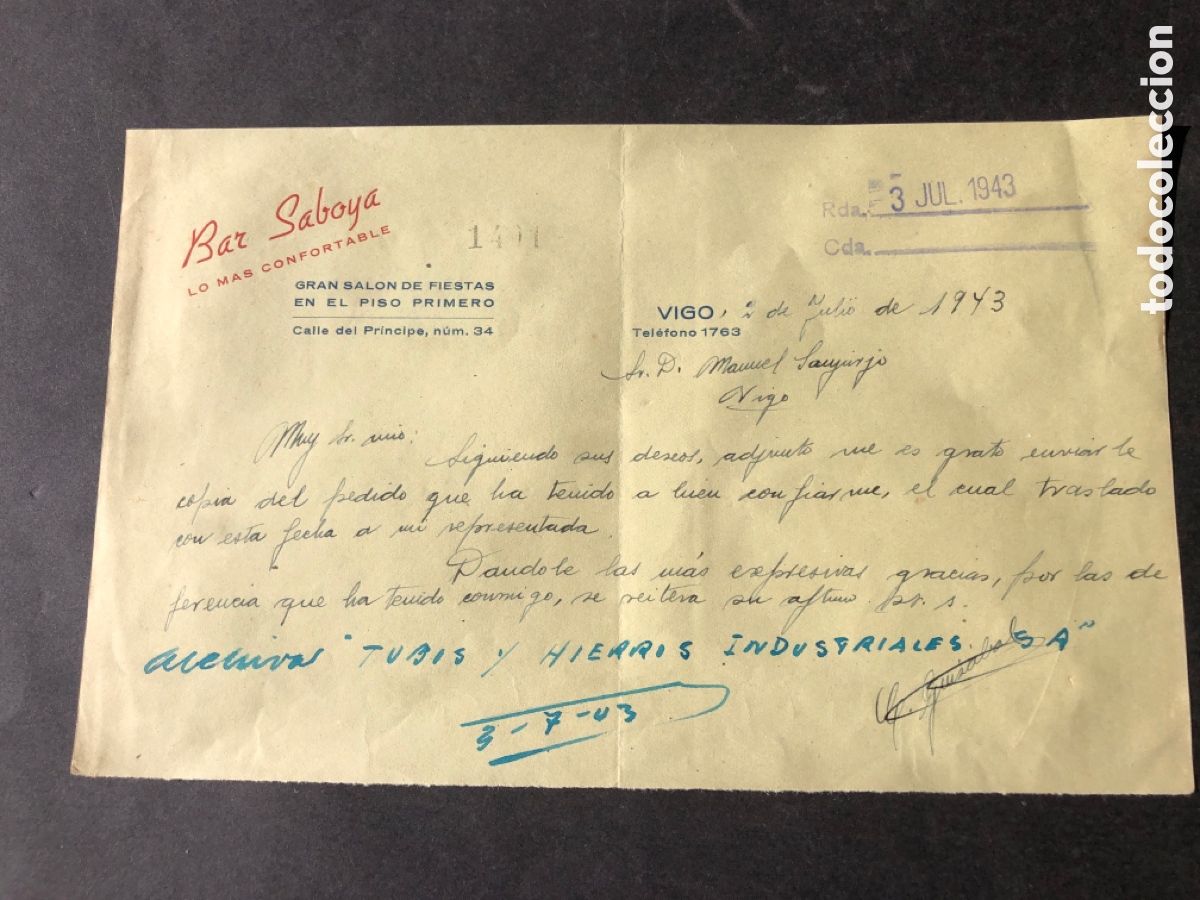 Bar Saboya
LO MAS CONFORTABLE
GRAN SALON DE FIESTAS
EN EL PISO PRIMERO
Calle del Príncipe, núm. 34
Rda. 3 JUL. 1943
Cda.
VIGO, 2 de Julio de 1943
Teléfono 1763
Sr. D. Manuel Sanjurjo
Vigo
Muy Sr. mio:
Siguiendo sus deseos, adjunto me es grato enviarle
copia del pedido que ha tenido a bien confiarme, el cual traslado
con esta fecha a mi representada.
Dandole las más expresivas gracias, por las de
ferencia que ha tenido conmigo, se reitera su aftmo. s. s.
Archivar "TUBOS Y HIERROS INDUSTRIALES SA"
3-7-43
todocoleccion